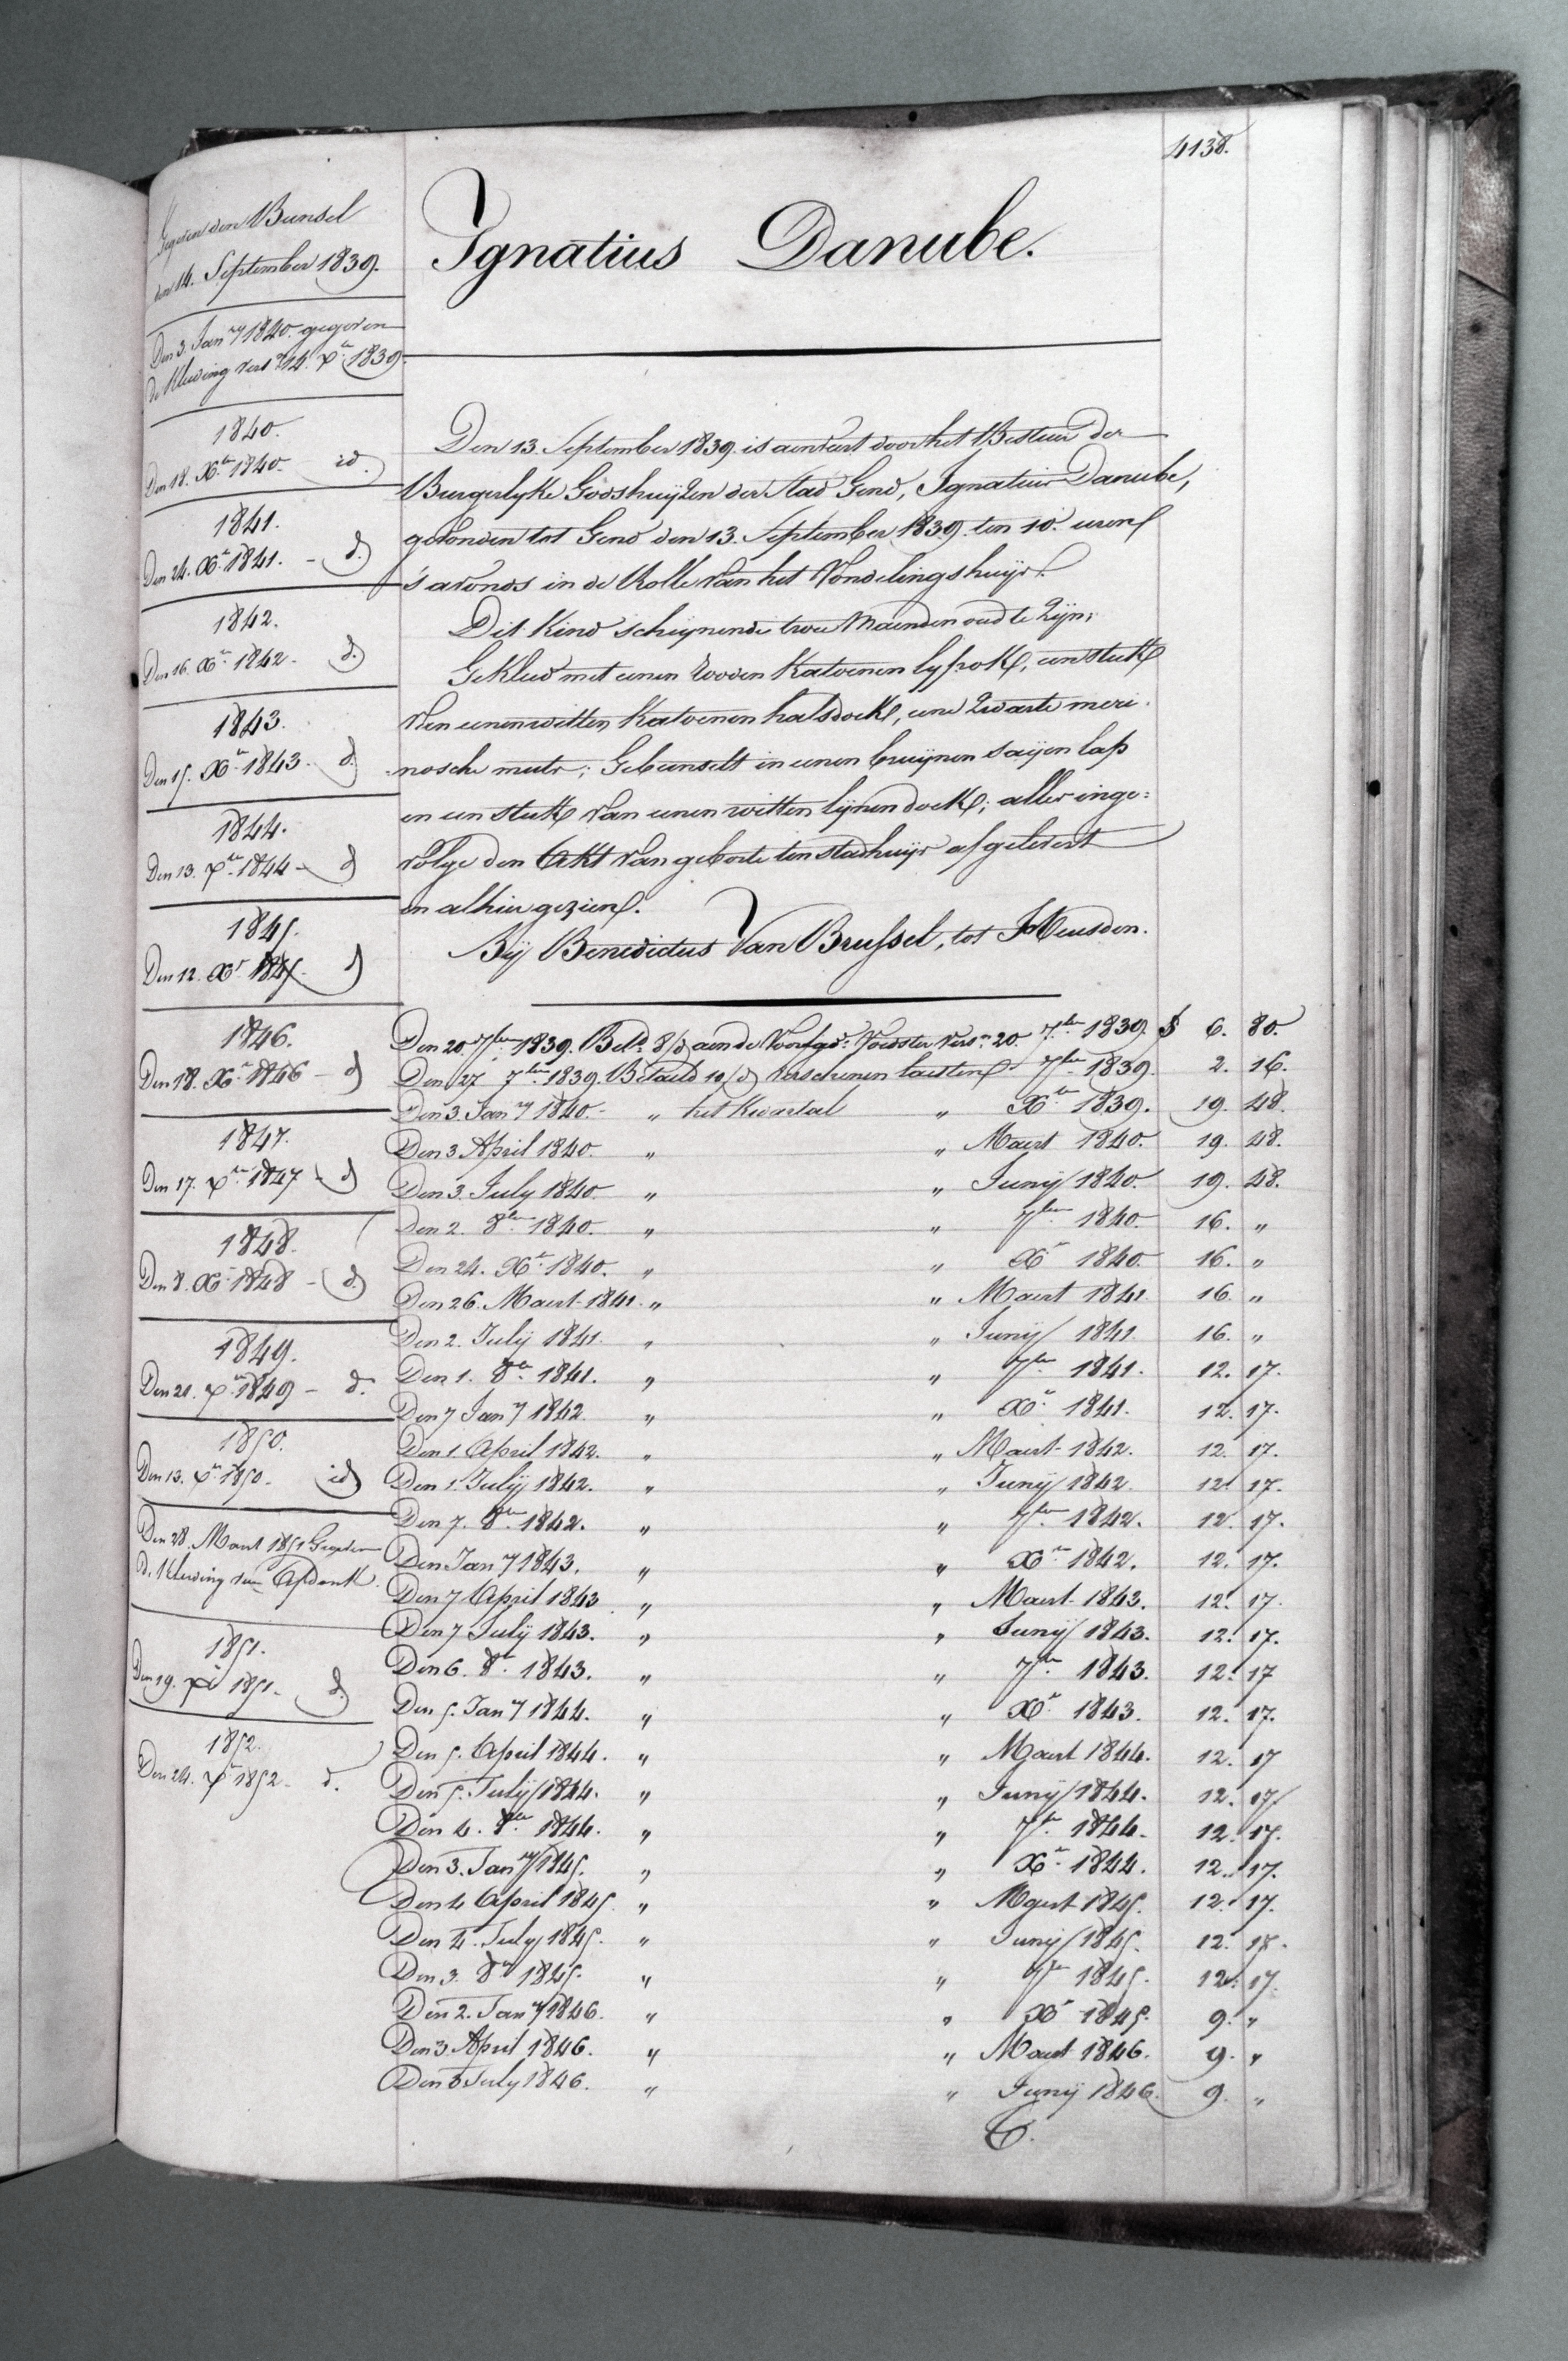 4138.
Gegeven den Bunsel
den 14. September 1839.
Den 3. Jan.ry 1840. gegeven
de Kleeding vers.n 14. Xber 1839.
1840.
Den 18. Xber 1840. id.
1841.
Den 24. Xber 1841. - d.
1842.
Den 16. Xber 1842. d.
1843.
Den 15. Xber 1843. d.
1844.
Den 13. Xber 1844 - d
1845.
Den 12. Xber 1845. d
1846.
Den 18. Xber 1846 - d
1847.
Den 17. Xber 1847 - d
1848.
Den 8. Xber 1848 - d.
1849.
Den 21. Xber 1849 - d.
1850.
Den 13. Xber 1850. id
Den 28. Maert 1851 Gegeven
de Kleeding van Afdank
1851.
Den 19. Xber 1851. d.
1852.
Den 24. Xber 1852 - d.
Ignatius Danube.
Den 13. September 1839. is aenveert door het Bestuer der
Burgerlyke Godshuijzen der Stad Gend, Ignatius Danube,
gevonden tot Gend den 13. September 1839. ten 10. uren
's avonds in de Rolle van het Vondelingshuijs.
Dit Kind schijnende twee Maenden oud te Zijn;
Gekleed met eenen rooden Katoenen lyfrok, een stuk
van eenen witten Katoenen halsdoek, eene Zwarte meri-
nosche muts; Gebunselt in eenen bruijnen saijen lap
en een stuk van eenen witten lijnen doek; alles inge=
volge den Akt van geborte ten stadhuijs afgelevert
en alhier gezien.
Bij Benedictus Van Brussel, tot Heusden.
Den 20. 7ber 1839. Bet.d 8/d aen de Voorsg.de Voedster vers.n 20. 7ber 1839. 6. 80.
Den 27 7ber 1839. Betaeld 10/d verschenen laesten 7ber 1839. 2. 16.
Den 3. Jan.ry 1840. " het Kwartael " Xber 1839. 19. 48.
Den 3 April 1840. " " Maert 1840. 19. 48.
Den 3. July 1840. " " Junij 1840. 19. 48.
Den 2. 8ber 1840. " " 7ber 1840. 16. "
Den 24. Xber 1840. " " Xber 1840. 16. "
Den 26. Maert 1841. " " Maert 1841. 16. "
Den 2. Julij 1841. " " Junij 1841. 16. "
Den 1. 8ber 1841. " " 7ber 1841. 12. 17.
Den 7 Jan.ry 1842. " " Xber 1841. 12. 17.
Den 1. April 1842. " " Maert 1842. 12. 17.
Den 1. Julij 1842. " " Junij 1842. 12. 17.
Den 7. 8ber 1842. " " 7ber 1842. 12. 17.
Den Jan.ry 1843. " " Xber 1842. 12. 17.
Den 7 April 1843 " " Maert 1843. 12. 17.
Den 7 Julij 1843. " " Junij 1843. 12. 17.
Den 6. 8ber 1843. " " 7ber 1843. 12. 17
Den 5. Jan.ry 1844. " " Xber 1843. 12. 17.
Den 5. April 1844. " " Maert 1844. 12. 17
Den 5. Julij 1844. " " Junij 1844. 12. 17
Den 4. 8ber 1844. " " 7ber 1844. 12. 17.
Den 3. Jan.ry 1845. " " Xber 1844. 12. 17.
Den 4 April 1845. " " Maert 1845. 12. 17.
Den 4. July 1845. " " Junij 1845. 12. 17.
Den 3. 8ber 1845. " " 7ber 1845. 12. 17.
Den 2. Jan.ry 1846. " " Xber 1845. 9. "
Den 3. April 1846. " " Maert 1846. 9. "
Den 3 July 1846. " " Junij 1846. 9. "